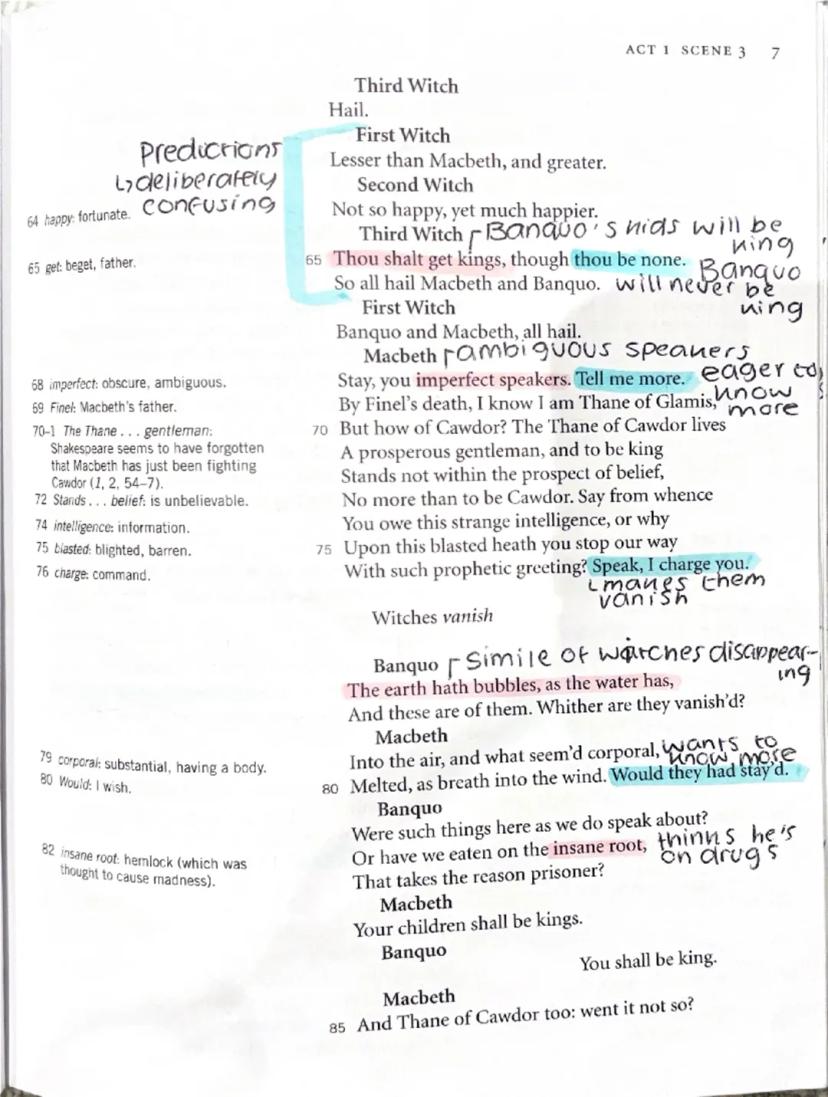 ACT 1 SCENE 3 7
Third Witch
Hail.
First Witch
Predictions
Lesser than Macbeth, and greater.
↳deliberately
Second Witch
confusing
64 happy: fortunate.
Not so happy, yet much happier.
Third Witch Banquo's kids will be
king
65 get: beget, father.
65 Thou shalt get kings, though thou be none.
Banquo
So all hail Macbeth and Banquo. will never be
king
First Witch
Banquo and Macbeth, all hail.
Macbeth ambiguous speakers
68 imperfect: obscure, ambiguous.
Stay, you imperfect speakers. Tell me more. eager to
know
more
69 Finel: Macbeth's father.
By Finel's death, I know I am Thane of Glamis,
70–1 The Thane . . . gentleman:
Shakespeare seems to have forgotten
that Macbeth has just been fighting
Cawdor (1, 2, 54–7).
70 But how of Cawdor? The Thane of Cawdor lives
A prosperous gentleman, and to be king
Stands not within the prospect of belief,
72 Stands . . . belief: is unbelievable.
No more than to be Cawdor. Say from whence
74 intelligence: information.
You owe this strange intelligence, or why
75 blasted: blighted, barren.
75 Upon this blasted heath you stop our way
76 charge: command.
With such prophetic greeting? Speak, I charge you.
makes them
vanish
Witches vanish
Banquo simile of witches disappear-
ing
The earth hath bubbles, as the water has,
And these are of them. Whither are they vanish'd?
Macbeth
79 corporal: substantial, having a body.
Into the air, and what seem'd corporal, wants to
know more
80 Would: I wish.
80 Melted, as breath into the wind. Would they had stay'd.
Banquo
Were such things here as we do speak about?
82 insane root: hemlock (which was
thought to cause madness).
Or have we eaten on the insane root, thinks he's
on drugs
That takes the reason prisoner?
Macbeth
Your children shall be kings.
Banquo
You shall be king.
Macbeth
85 And Thane of Cawdor too: went it not so?